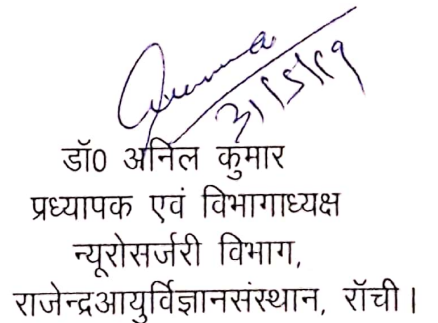 31/5/19
डॉ0 अनिल कुमार
प्रध्यापक एवं विभागाध्यक्ष
न्यूरोसर्जरी विभाग,
राजेन्द्रआयुर्विज्ञानसंस्थान, रॉची।